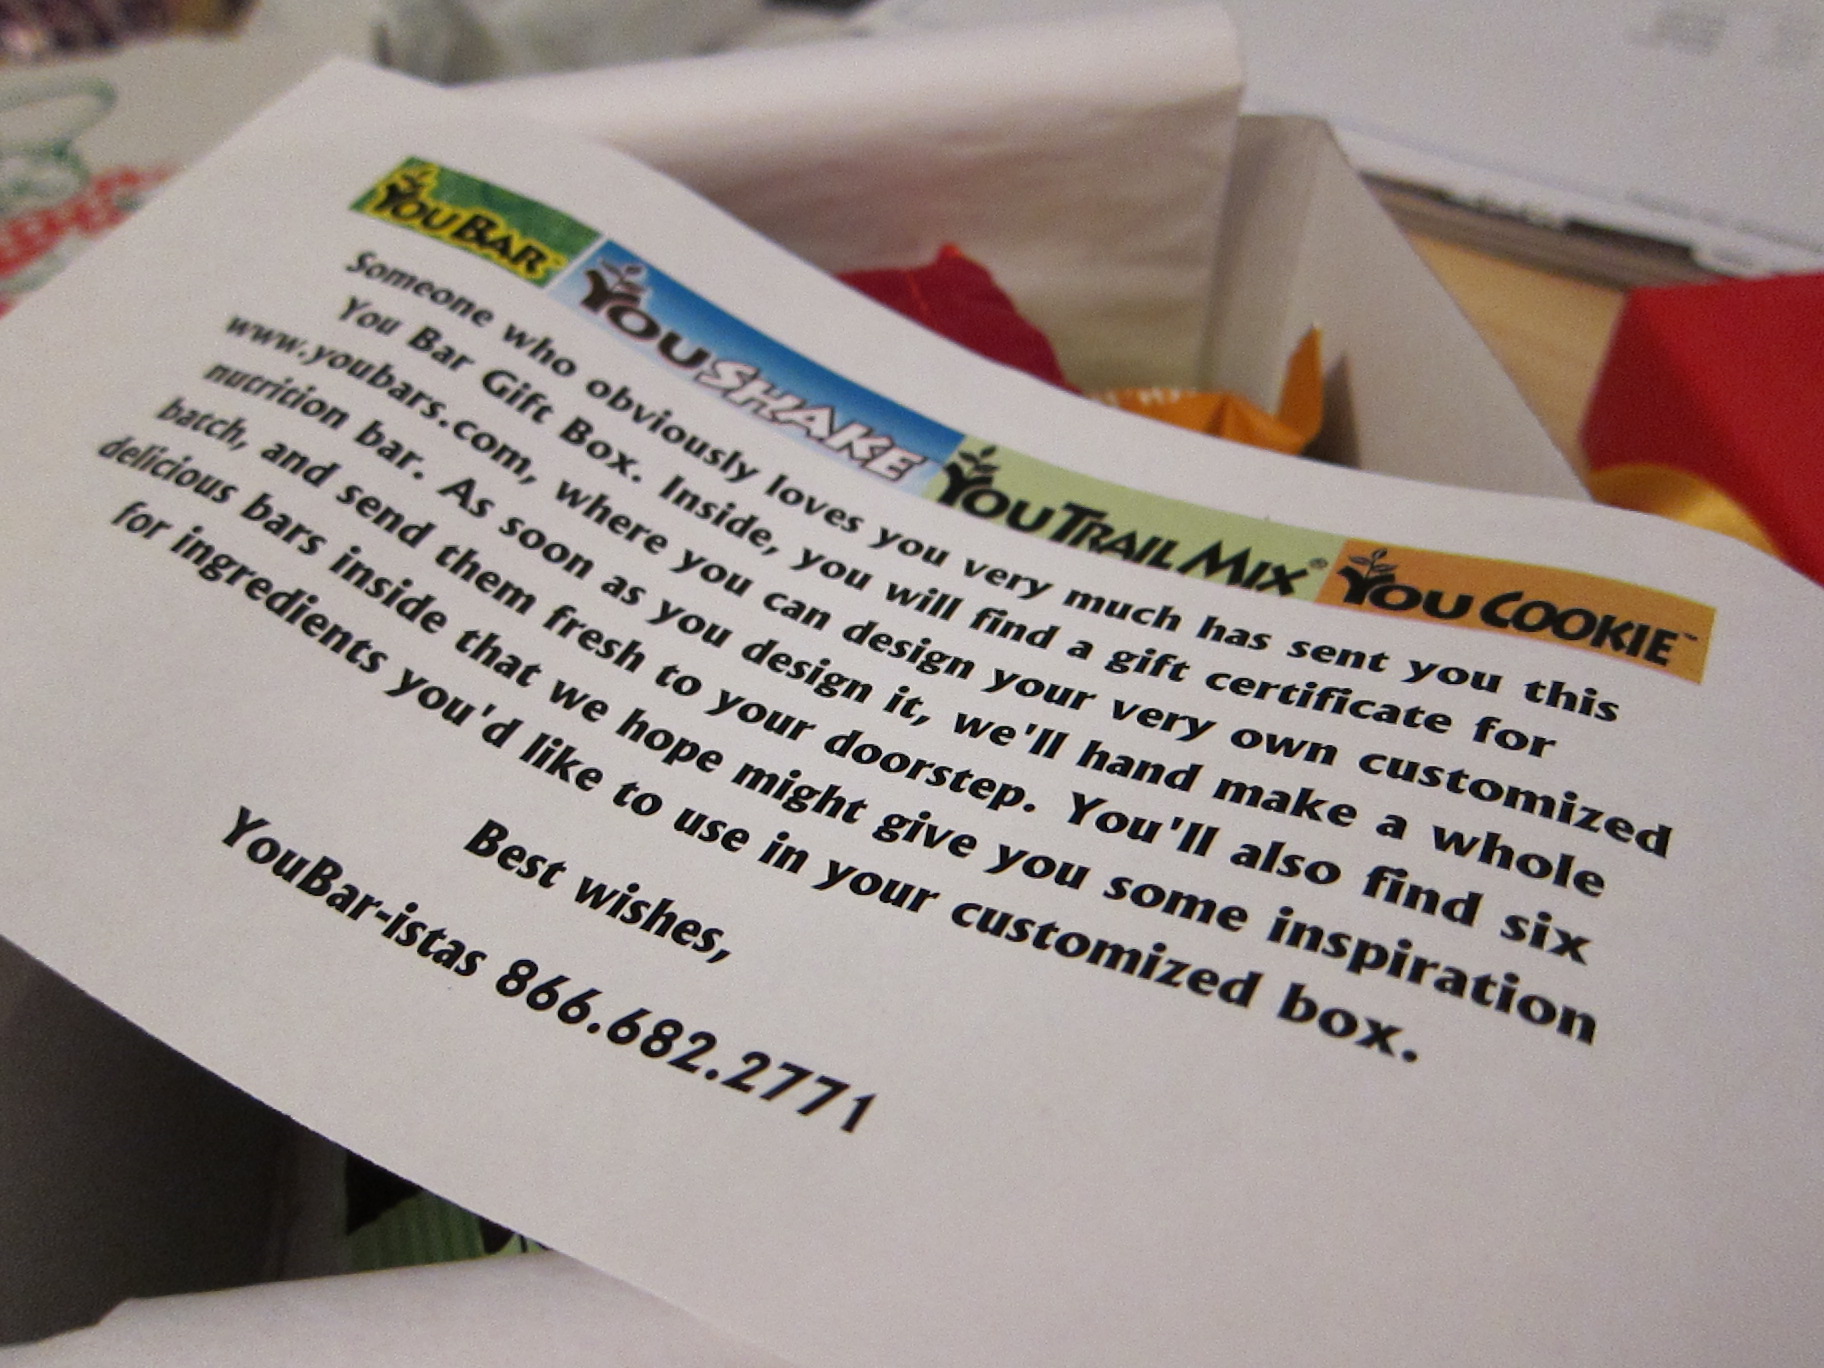 YOU BAR™ YOU SHAKE YOU TRAIL MIX® YOU COOKIE™
Someone who obviously loves you very much has sent you this
You Bar Gift Box. Inside, you will find a gift certificate for
www.youbars.com, where you can design your very own customized
nutrition bar. As soon as you design it, we'll hand make a whole
batch, and send them fresh to your doorstep. You'll also find six
delicious bars inside that we hope might give you some inspiration
for ingredients you'd like to use in your customized box.
Best wishes,
YouBar-istas 866.682.2771